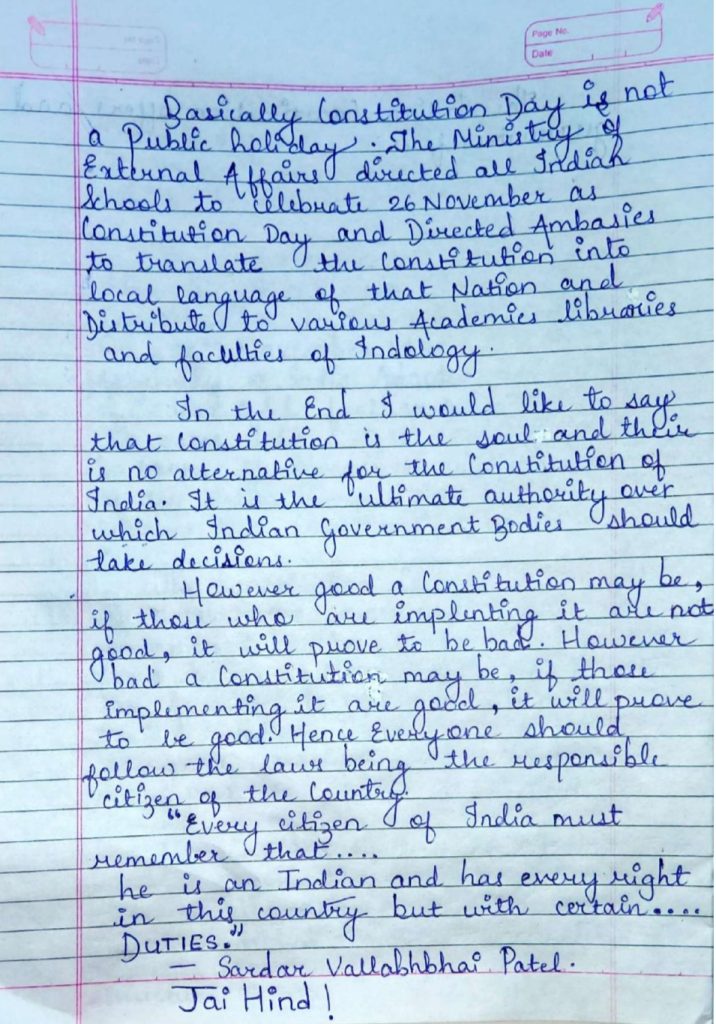 Page No.
Date
Basically Constitution Day is not
a Public holiday. The Ministry of
External Affairs directed all Indian
Schools to celebrate 26 November as
Constitution Day and Directed Ambasies
to translate the Constitution into
local language of that Nation and
Distribute to various Academies libraries
and faculties of Indology.
In the End I would like to say
that Constitution is the soul and their
is no alternative for the Constitution of
India. It is the ultimate authority over
which Indian Government Bodies should
take decisions.
However good a Constitution may be,
if those who are implenting it are not
good, it will prove to be bad. However
bad a Constitution may be, if those
implementing it are good, it will prove
to be good. Hence Everyone should
follow the laws being the responsible
citizen of the Country.
"Every citizen of India must
remember that....
he is an Indian and has every right
in this country but with certain....
DUTIES."
— Sardar Vallabhbhai Patel.
Jai Hind!